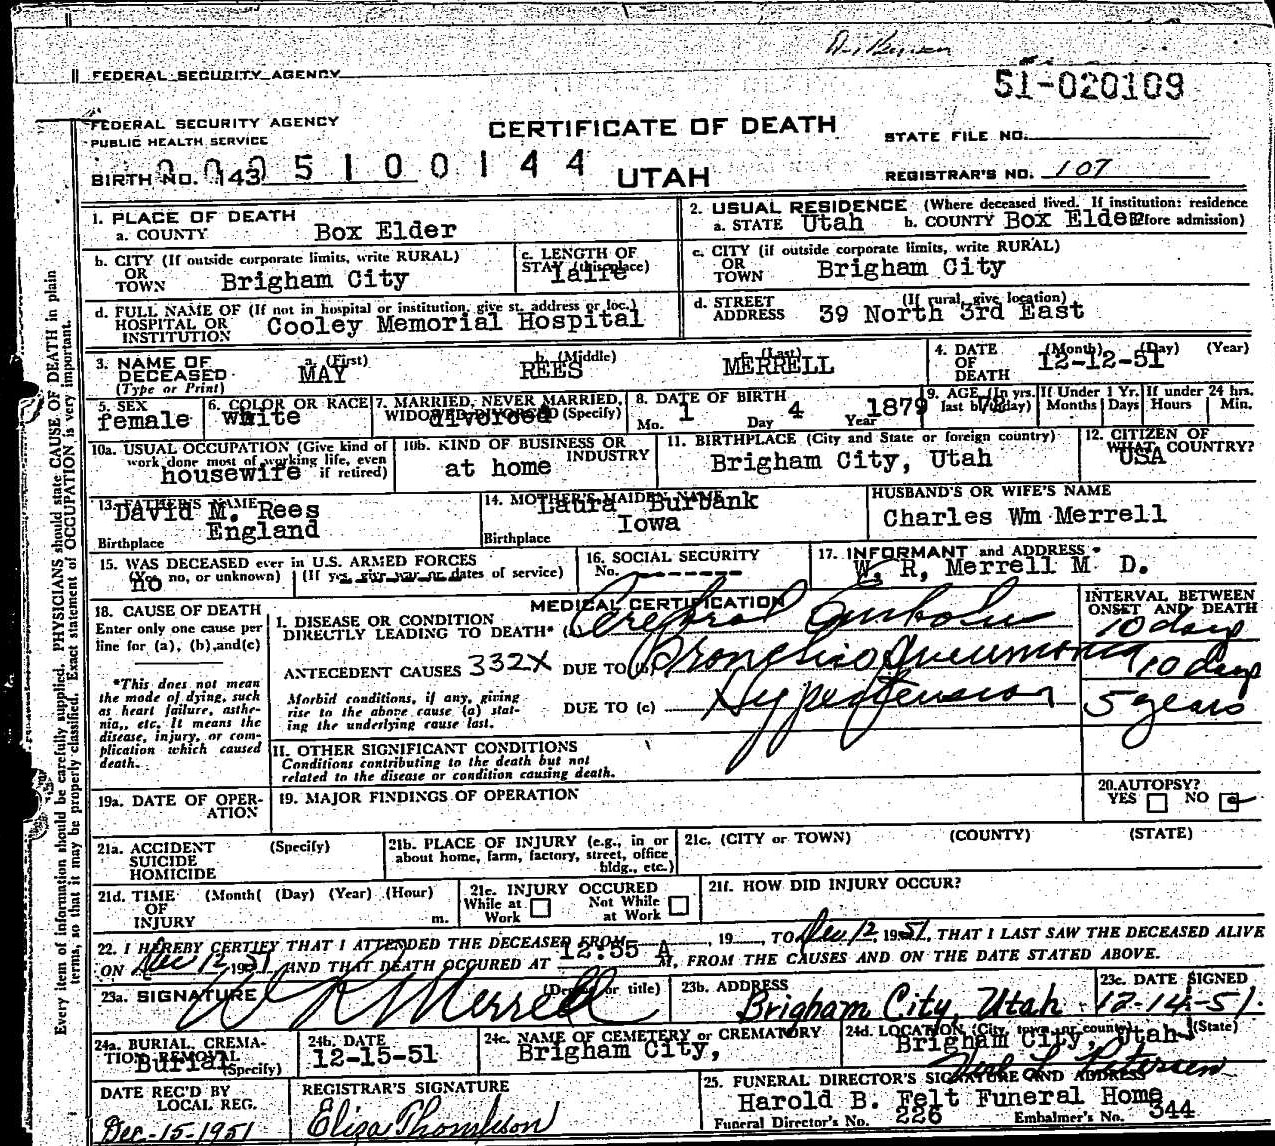 FEDERAL SECURITY AGENCY
51-020109
FEDERAL SECURITY AGENCY
PUBLIC HEALTH SERVICE
CERTIFICATE OF DEATH
STATE FILE NO.
BIRTH NO. 143 5 1 0 0 1 4 4
UTAH
REGISTRAR'S NO. 107
Every item of information should be carefully supplied. PHYSICIANS should state CAUSE OF DEATH in plain
terms, so that it may be properly classified. Exact statement of OCCUPATION is very important.
1. PLACE OF DEATH
a. COUNTY Box Elder
2. USUAL RESIDENCE (Where deceased lived. If institution: residence
a. STATE Utah b. COUNTY Box Elder before admission)
b. CITY (If outside corporate limits, write RURAL)
OR
TOWN Brigham City
c. LENGTH OF
STAY (this place)
c. CITY (if outside corporate limits, write RURAL)
OR
TOWN Brigham City
d. FULL NAME OF (If not in hospital or institution, give st. address or loc.)
HOSPITAL OR
INSTITUTION Cooley Memorial Hospital
d. STREET (If rural, give location)
ADDRESS 39 North 3rd East
3. NAME OF
DECEASED
(Type or Print)
a. (First) b. (Middle) c. (Last)
MAY REES MERRELL
4. DATE
OF
DEATH
(Month) (Day) (Year)
12-12-51
5. SEX
female
6. COLOR OR RACE
white
7. MARRIED, NEVER MARRIED,
WIDOWED, DIVORCED (Specify)
divorced
8. DATE OF BIRTH
Mo. 1 Day 4 Year 1879
9. AGE (In yrs.
last birthday)
If Under 1 Yr.
Months Days
If under 24 hrs.
Hours Min.
10a. USUAL OCCUPATION (Give kind of
work done most of working life, even
if retired)
housewife
10b. KIND OF BUSINESS OR
INDUSTRY
at home
11. BIRTHPLACE (City and State or foreign country)
Brigham City, Utah
12. CITIZEN OF
WHAT COUNTRY?
USA
13. FATHER'S NAME
David M. Rees
England
Birthplace
14. MOTHER'S MAIDEN NAME
Laura Burbank
Iowa
Birthplace
HUSBAND'S OR WIFE'S NAME
Charles Wm Merrell
15. WAS DECEASED ever in U.S. ARMED FORCES
(Yes, no, or unknown) (If yes, give war or dates of service)
no
16. SOCIAL SECURITY
No.
17. INFORMANT and ADDRESS
W. R. Merrell M D.
18. CAUSE OF DEATH
Enter only one cause per
line for (a), (b), and (c)
*This does not mean
the mode of dying, such
as heart failure, asthe-
nia,, etc. It means the
disease, injury, or com-
plication which caused
death.
MEDICAL CERTIFICATION
INTERVAL BETWEEN
ONSET AND DEATH
I. DISEASE OR CONDITION
DIRECTLY LEADING TO DEATH* (a) Cerebral Embolus 10 days
ANTECEDENT CAUSES 332X DUE TO (b) Broncho Pneumonia 10 days
Morbid conditions, if any, giving
rise to the above cause (a) stat-
ing the underlying cause last.
DUE TO (c) Hypertension 5 years
II. OTHER SIGNIFICANT CONDITIONS
Conditions contributing to the death but not
related to the disease or condition causing death.
19a. DATE OF OPER-
ATION
19. MAJOR FINDINGS OF OPERATION
20. AUTOPSY?
YES NO
21a. ACCIDENT (Specify)
SUICIDE
HOMICIDE
21b. PLACE OF INJURY (e.g., in or
about home, farm, factory, street, office
bldg., etc.)
21c. (CITY or TOWN) (COUNTY) (STATE)
21d. TIME (Month( (Day) (Year) (Hour)
OF
INJURY m.
21e. INJURY OCCURED
While at Not While
Work at Work
21f. HOW DID INJURY OCCUR?
22. I HEREBY CERTIFY THAT I ATTENDED THE DECEASED FROM , 19 , TO Dec 12, 1951, THAT I LAST SAW THE DECEASED ALIVE
ON Dec 12, 1951 AND THAT DEATH OCCURED AT 12:55 A M, FROM THE CAUSES AND ON THE DATE STATED ABOVE.
23a. SIGNATURE (Degree or title)
W R Merrell
23b. ADDRESS
Brigham City, Utah
23c. DATE SIGNED
12-14-51.
24a. BURIAL, CREMA-
TION REMOVAL
(Specify)
Burial
24b. DATE
12-15-51
24c. NAME OF CEMETERY or CREMATORY
Brigham City,
24d. LOCATION (City, town, or county) (State)
Brigham City, Utah
DATE REC'D BY
LOCAL REG.
Dec-15-1951
REGISTRAR'S SIGNATURE
Eliza Thompson
25. FUNERAL DIRECTOR'S SIGNATURE AND ADDRESS
Harold B. Felt Funeral Home
Funeral Director's No. 226 Embalmer's No. 344